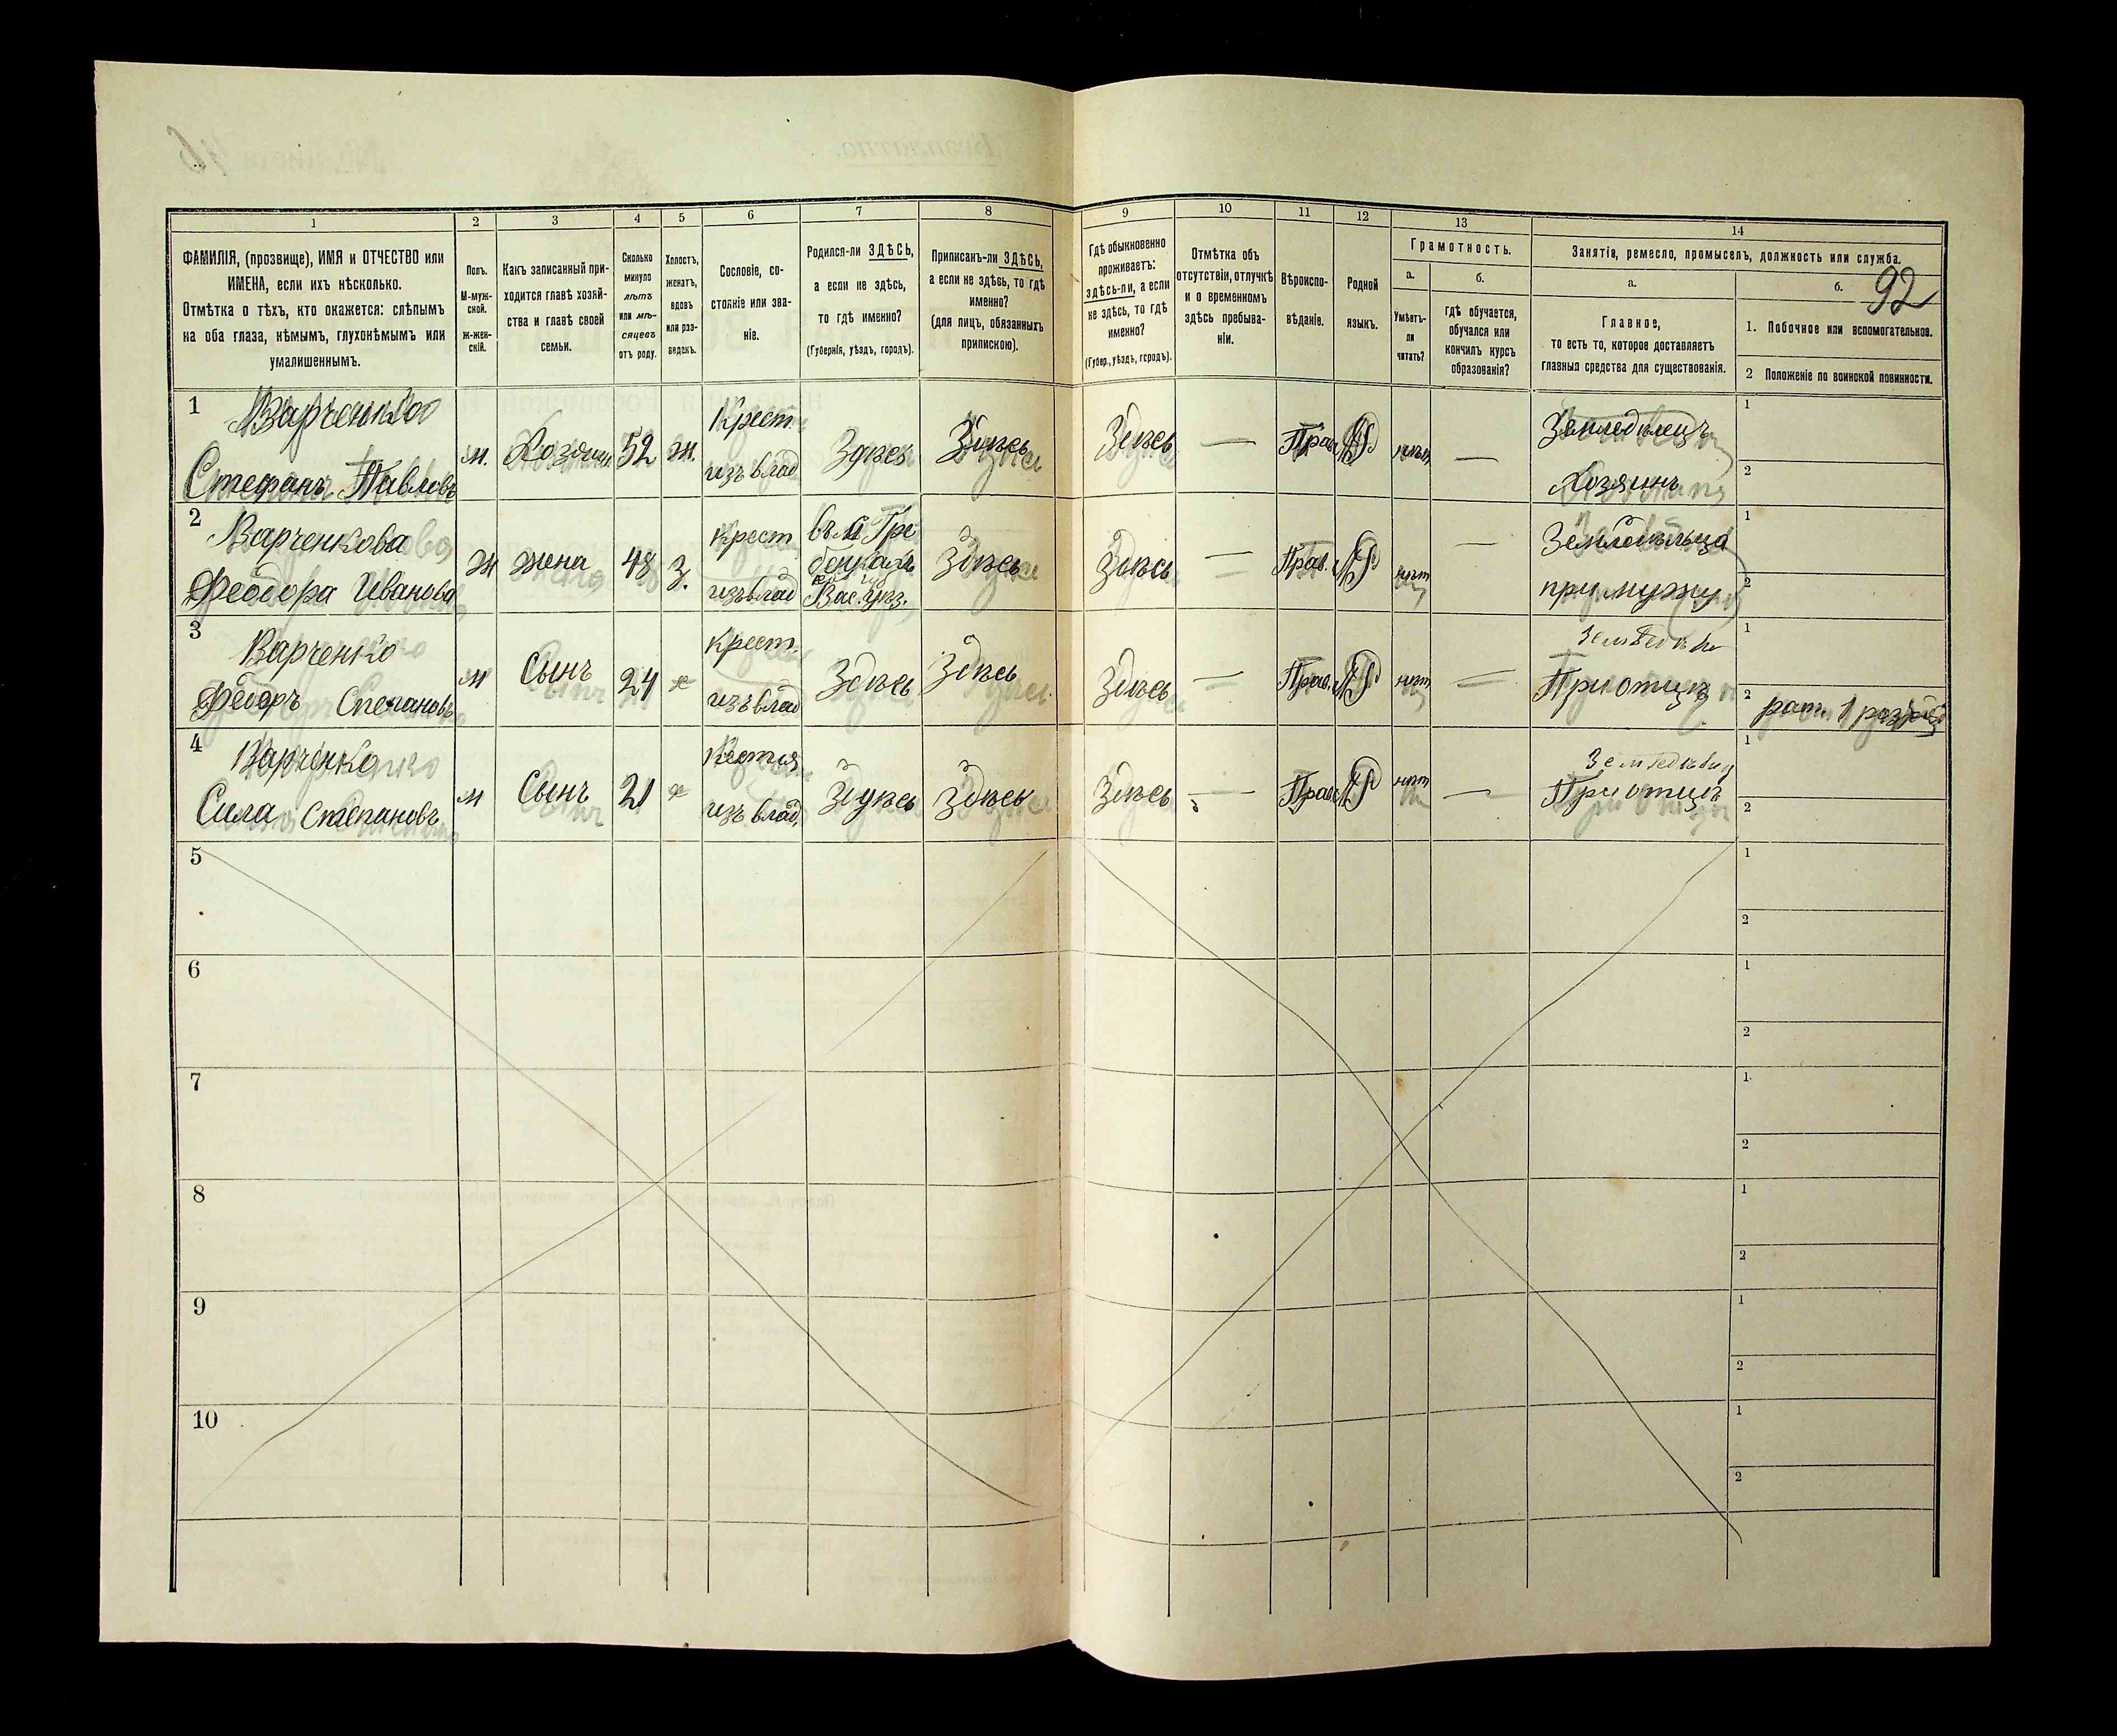 1 2 3 4 5 6 7 8 9 10 11 12 13 14
ФАМИЛІЯ, (прозвище), ИМЯ и ОТЧЕСТВО или
ИМЕНА, если ихъ нѣсколько.
Отмѣтка о тѣхъ, кто окажется: слѣпымъ
на оба глаза, нѣмымъ, глухонѣмымъ или
умалишеннымъ.
Полъ.
М-муж-
ской.
Ж-жен-
скій.
Какъ записанный при-
ходится главѣ хозяй-
ства и главѣ своей
семьи.
Сколько
минуло
лѣтъ
или мѣ-
сяцевъ
отъ роду.
Холостъ,
женатъ,
вдовъ
или раз-
веденъ.
Сословіе, со-
стояніе или зва-
ніе.
Родился-ли ЗДѢСЬ,
а если не здѣсь,
то гдѣ именно?
(Губернія, уѣздъ, городъ).
Приписанъ-ли ЗДѢСЬ,
а если не здѣсь, то гдѣ
именно?
(для лицъ, обязанныхъ
припискою).
Гдѣ обыкновенно
проживаетъ:
здѣсь-ли, а если
не здѣсь, то гдѣ
именно?
(Губер., уѣздъ, городъ).
Отмѣтка объ
отсутствіи, отлучкѣ
и о временномъ
здѣсь пребыва-
ніи.
Вѣроиспо-
вѣданіе.
Родной
языкъ.
Грамотность.
а.
Умѣетъ-
ли
читать?
б.
Гдѣ обучается,
обучался или
кончилъ курсъ
образованія?
Занятія, ремесло, промыселъ, должность или служба.
а.
Главное,
то есть то, которое доставляетъ
главныя средства для существованія.
б.
92
1. Побочное или вспомогательное.
2 Положеніе по воинской повинности.
1 Варченко
Стефанъ Павловъ
м. Хозяинъ 52 ж.
Крест
изъ влад
Здѣсь Здѣсь Здѣсь — Прав нѣт —
Земледѣлецъ
Хозяинъ
1
2
2 Варченкова
Феодора Иванова
Ж жена 48 з.
Крест
изъ влад
Здѣсь Здѣсь — Прав. нѣт —
при мужу
1
2
3 Варченко
Федоръ Степановъ
м Сынъ 24 х
Крест.
изъ влад
Здѣсь Здѣсь Здѣсь — Прав. нѣт —
При отцѣ
1
2 рат. 1 разряд
4 Варченко
Сила Степановъ
м Сынъ 21 х
изъ влад.
Здѣсь Здѣсь Здѣсь — Прав нѣт —
При отцѣ
1
2
5
1
2
6
1
2
7
1
2
8
1
2
9
1
2
10
1
2